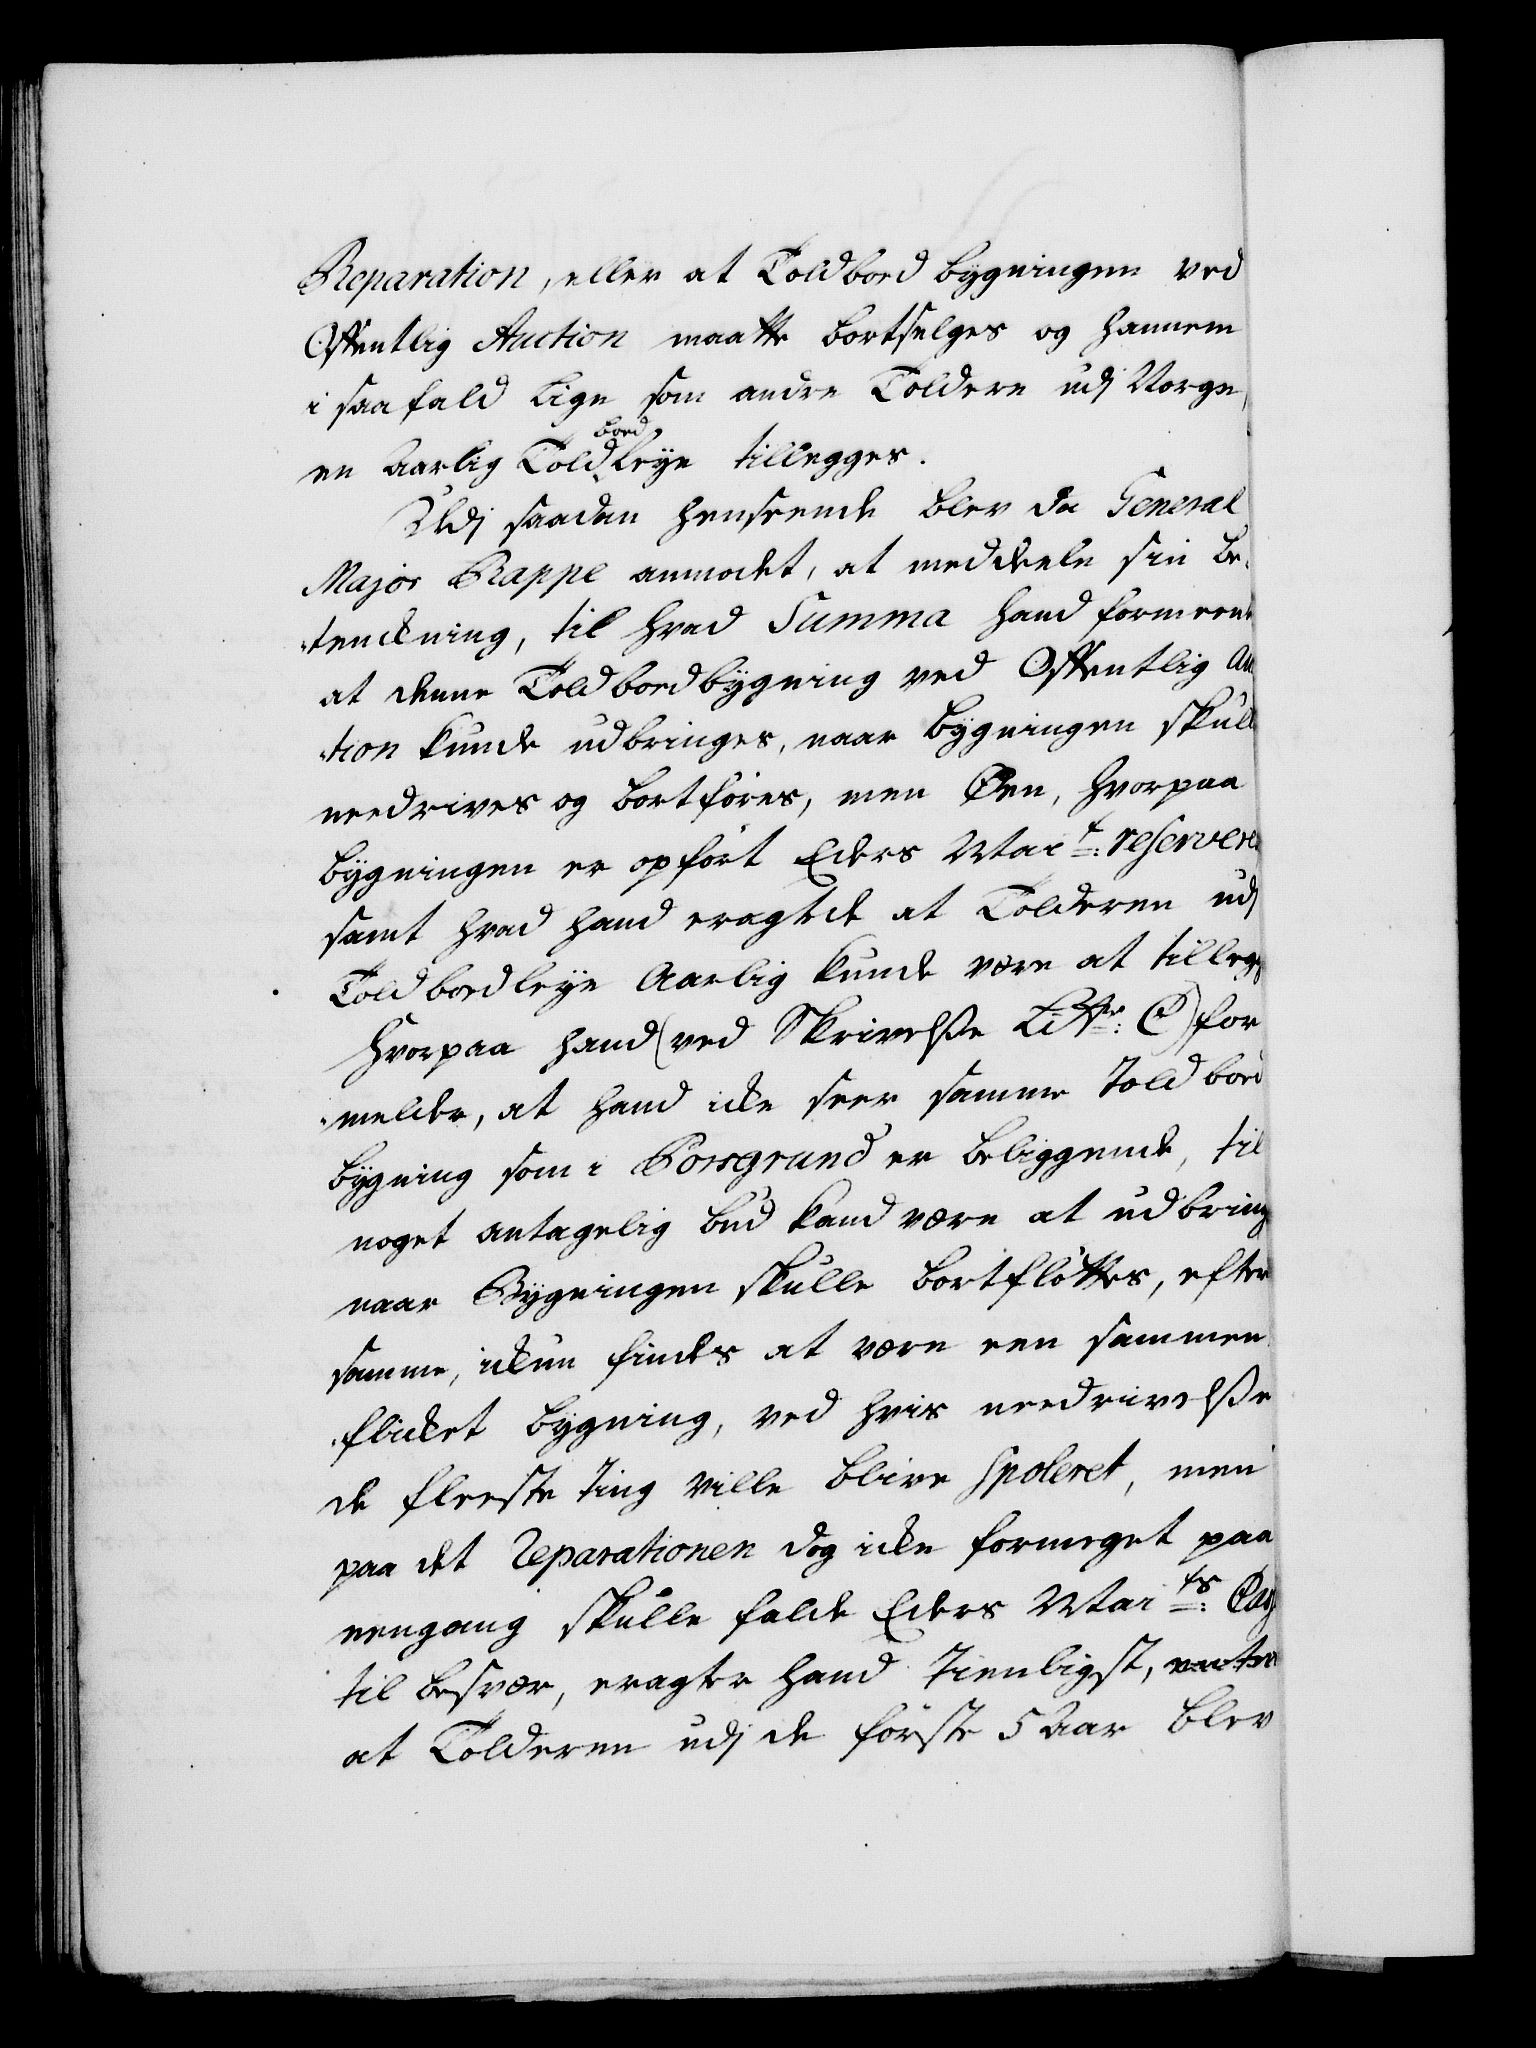 Reparation, eller at Toldboed bygningen ved
Offentlig Auction maatte bortselges og hannem
i saafald lige som andre Toldere udj Norge,
en Aarlig Toldboed leye tillegges.
Udj saadan henseende blev da General
Major Rappe anmodet, at meddeele sin be-
tenckning, til hvad Summa hand formeente
at denne Toldboedbygning ved Offentlig Auc
tion kunde udbringes, naar bygningen skulle
needrives og bortføres, men Øen, hvorpaa
bygningen er opført Eders Mai:t reserveres
samt hvad hand eragtede at Tolderen udj
Toldboedleye Aarlig kunde være at tillegge
Hvorpaa hand (ved Skrivelsse Littr: C) for
melder, at hand icke seer samme Toldboed
bygning som i Porsgrund er beliggende, til
noget antagelig bud kand være at udbringe
naar Bygningen skulle bortfløttes, efter
samme, ickun findes at være een sammen
flicket bygning, ved hvis needrivelsse
de fleeste ting ville blive spoleret, men
paa det Reparationen dog icke formeget paa
eengang skulle falde Eders Mai:ts
til besvær, eragter hand tienligst,
at Tolderen udj de første 5 Aar blev